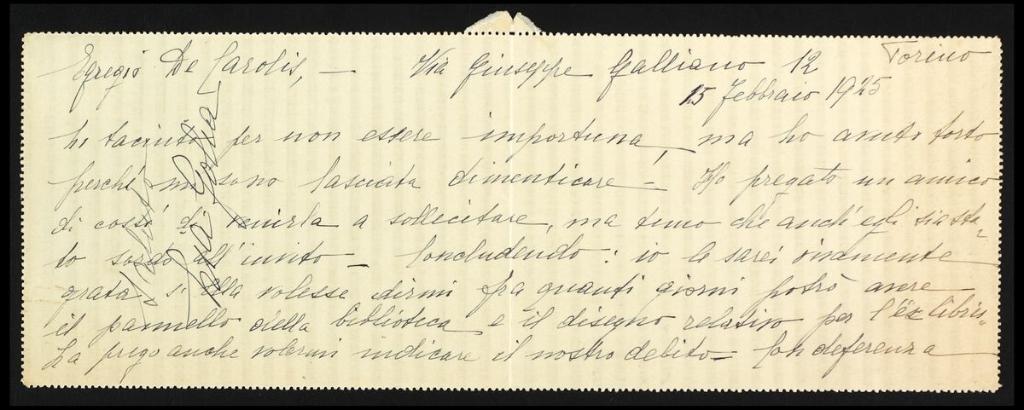 Torino
Egregio De Carolis, — Via Giuseppe Galliano 12
15 Febbraio 1925
ho taciuto per non essere importuna, ma ho avuto torto
perché mi sono lasciata dimenticare — Ho pregato un amico
di costì di venirla a sollecitare, ma temo che anch'egli sia sta-
to sordo all'invito — Concludendo: io le sarei vivamente
grata se ella volesse dirmi fra quanti giorni potrò avere
il pannello della biblioteca e il disegno relativo per l'ex libris.
La prego anche volermi indicare il nostro debito — Con deferenza